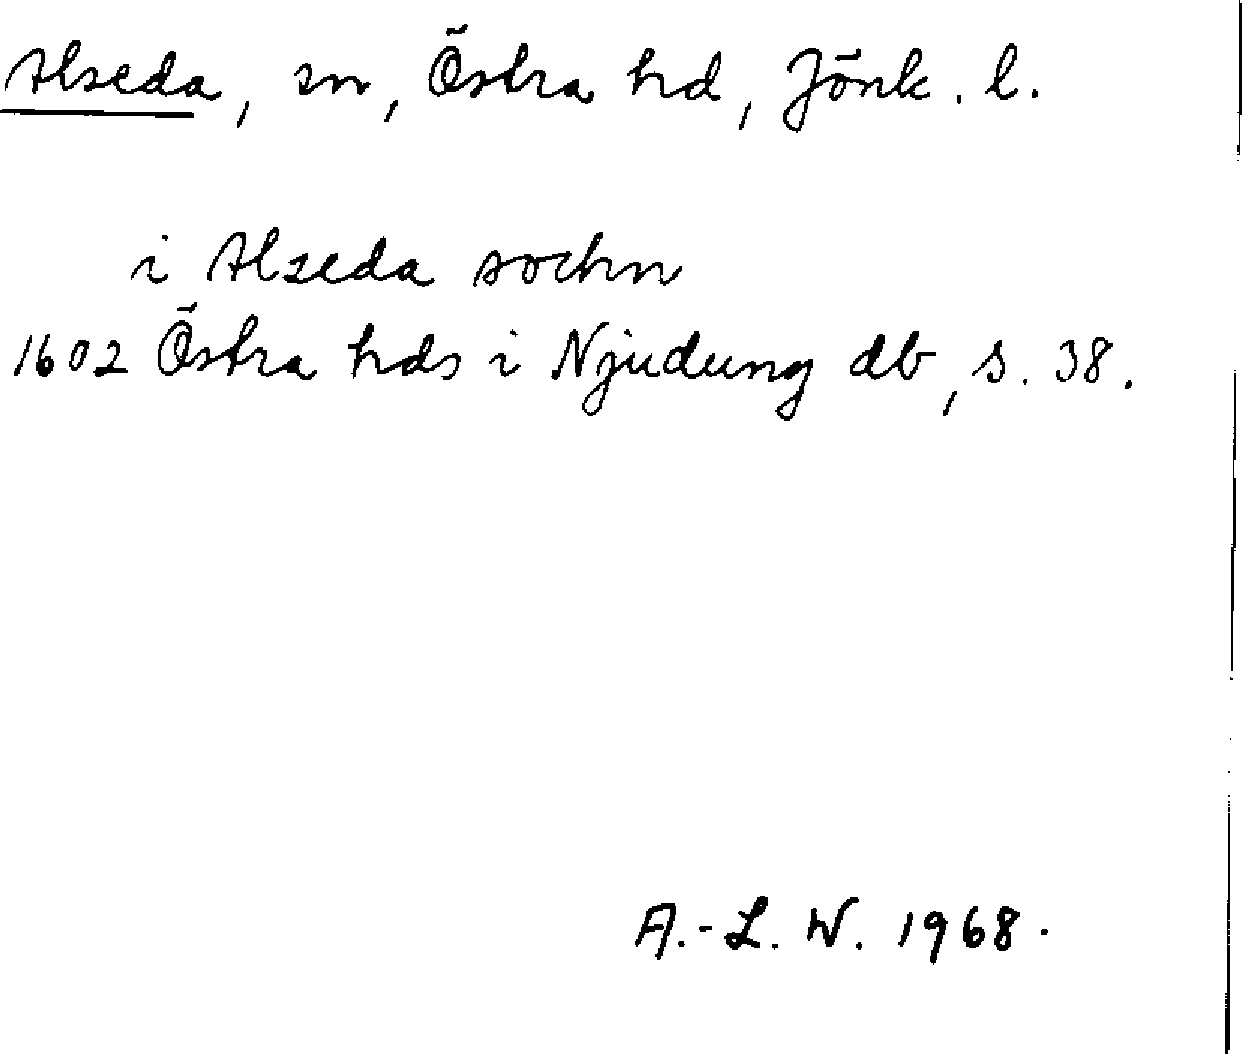 Alseda, sn, Östra hd, Jönk. l.
i Alzeda sochn
1602 Östra hds i Njudung db, s. 38.
A.-L. W. 1968.